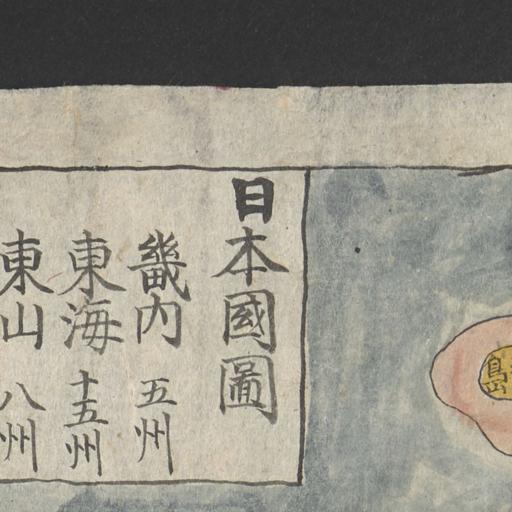 日本國圖
畿内 五州
東海 十五州
東山 八州
島